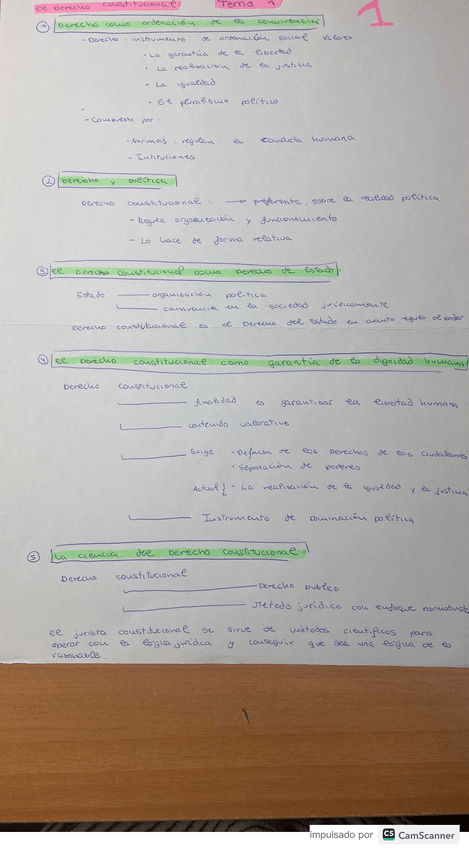 El Derecho constitucional Tema 1
1
① Derecho como ordenación de la convivencia
- Derecho: instrumento de ordenación social valores
· La garantía de la libertad
· La realización de la justicia
· La igualdad
· El pluralismo político
-
- Compuesto por:
- Normas: regulan la conducta humana
- Instituciones
② Derecho y política
Derecho constitucional: → preferente, sobre la realidad política
- Regula organización y funcionamiento
- Lo hace de forma relativa
③ El Derecho Constitucional como Derecho de Estado
Estado organización política
convivencia en la sociedad jurídicamente
Derecho constitucional es el Derecho del Estado en cuanto regula el poder
④ El Derecho constitucional como garantía de la dignidad humana
Derecho constitucional
finalidad es garantizar la libertad humana
contenido valorativo
Exige · Defensa de los Derechos de los ciudadanos
· Separación de poderes
Actual { · La realización de la igualdad y la justicia
Instrumento de dominación política
⑤ La ciencia del Derecho Constitucional
Derecho constitucional
Derecho público
Método jurídico con enfoque
El jurista constitucional se sirve de métodos científicos para
operar con la lógica jurídica y conseguir que sea una lógica de lo
razonable.
Impulsado por CS CamScanner